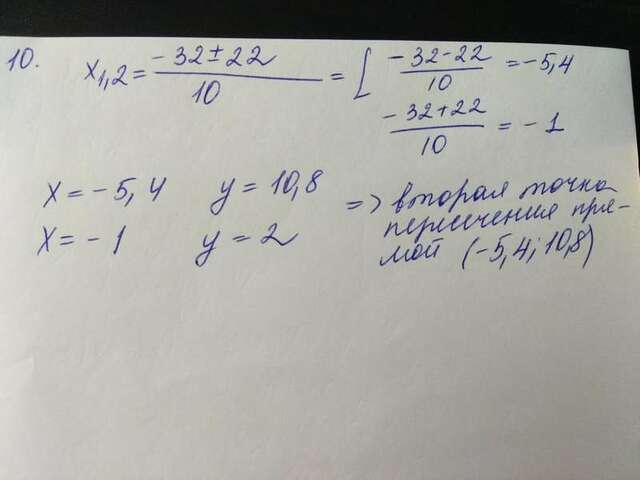 10. x₁,₂ = (-32 ± 22)/10 = [ (-32-22)/10 = -5,4
(-32+22)/10 = -1
x = -5,4 y = 10,8 => вторая точка
x = -1 y = 2 пересечения пря-
мой (-5,4; 10,8)